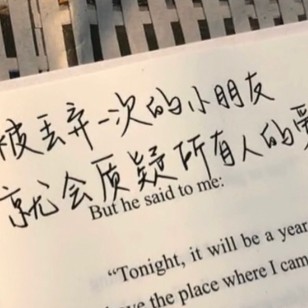 被丢弃一次的小朋友
就会质疑所有人的爱
But he said to me:
“Tonight, it will be a year
the place where I cam